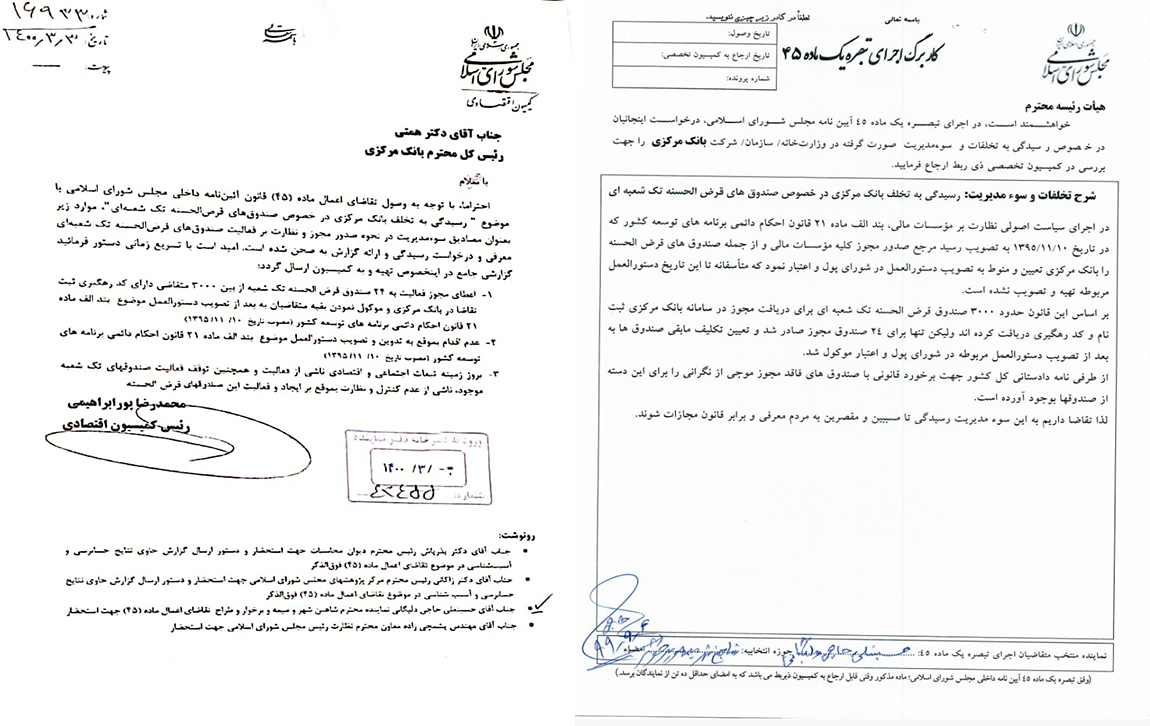 شماره: ۱۶۹۳۳
تاریخ: ۱۴۰۰/۳/۳
پیوست:
بسمه تعالی
جمهوری اسلامی ایران
مجلس شورای اسلامی
کمیسیون اقتصادی
جناب آقای دکتر همتی
رئیس کل محترم بانک مرکزی
با سلام
احتراماً، با توجه به وصول تقاضای اعمال ماده (۴۵) قانون آئین‌نامه داخلی مجلس شورای اسلامی با
موضوع " رسیدگی به تخلف بانک مرکزی در خصوص صندوق‌های قرض‌الحسنه تک شعبه‌ای"، موارد زیر
بعنوان مصادیق سوءمدیریت در نحوه صدور مجوز و نظارت بر فعالیت صندوق‌های قرض‌الحسنه تک شعبه‌ای
معرفی و درخواست رسیدگی و ارائه گزارش به صحن شده است. امید است با تسریع زمانی دستور فرمائید
گزارشی جامع در اینخصوص تهیه و به کمیسیون ارسال گردد؛
۱- اعطای مجوز فعالیت به ۲۴ صندوق قرض الحسنه تک شعبه از بین ۳۰۰۰ متقاضی دارای کد رهگیری ثبت
تقاضا در بانک مرکزی و موکول نمودن بقیه متقاضیان به بعد از تصویب دستورالعمل موضوع بند الف ماده
۲۱ قانون احکام دائمی برنامه های توسعه کشور (مصوب تاریخ ۱۰/ ۱۱/ ۱۳۹۵)
۲- عدم اقدام بموقع به تدوین و تصویب دستورالعمل موضوع بند الف ماده ۲۱ قانون احکام دائمی برنامه های
توسعه کشور (مصوب تاریخ ۱۰/ ۱۱/ ۱۳۹۵)
۳- بروز زمینه تبعات اجتماعی و اقتصادی ناشی از فعالیت و همچنین توقف فعالیت صندوقهای تک شعبه
موجود، ناشی از عدم کنترل و نظارت بموقع بر ایجاد و فعالیت این صندوقهای قرض الحسنه
محمدرضا پورابراهیمی
رئیس کمیسیون اقتصادی
ورود به دبیرخانه دفتر نماینده
۱۴۰۰/۳/۰۳
شماره:
رونوشت:
• جناب آقای دکتر بذرپاش رئیس محترم دیوان محاسبات جهت استحضار و دستور ارسال گزارش حاوی نتایج حسابرسی و
آسیب‌شناسی در موضوع تقاضای اعمال ماده (۴۵) فوق‌الذکر
• جناب آقای دکتر زاکانی رئیس محترم مرکز پژوهشهای مجلس شورای اسلامی جهت استحضار و دستور ارسال گزارش حاوی نتایج
حسابرسی و آسیب شناسی در موضوع تقاضای اعمال ماده (۴۵) فوق‌الذکر
• جناب آقای حسینعلی حاجی دلیگانی نماینده محترم شاهین شهر و میمه و برخوار و طراح تقاضای اعمال ماده (۴۵) جهت استحضار
• جناب آقای مهندس پشمچی زاده معاون محترم نظارت رئیس مجلس شورای اسلامی جهت استحضار
باسمه تعالی
لطفاً در کادر زیر چیزی ننویسید.
جمهوری اسلامی ایران
مجلس شورای اسلامی
کاربرگ اجرای تبصره یک ماده ۴۵
تاریخ وصول:
تاریخ ارجاع به کمیسیون تخصصی:
شماره پرونده:
هیأت رئیسه محترم
خواهشمند است، در اجرای تبصره یک ماده ۴۵ آیین نامه مجلس شورای اسلامی، درخواست اینجانبان
در خصوص رسیدگی به تخلفات و سوءمدیریت صورت گرفته در وزارت‌خانه/ سازمان/ شرکت بانک مرکزی را جهت
بررسی در کمیسیون تخصصی ذی ربط ارجاع فرمایید.
شرح تخلفات و سوء مدیریت: رسیدگی به تخلف بانک مرکزی در خصوص صندوق های قرض الحسنه تک شعبه ای
در اجرای سیاست اصولی نظارت بر مؤسسات مالی، بند الف ماده ۲۱ قانون احکام دائمی برنامه های توسعه کشور که
در تاریخ ۱۳۹۵/۱۱/۱۰ به تصویب رسید مرجع صدور مجوز کلیه مؤسسات مالی و از جمله صندوق های قرض الحسنه
را بانک مرکزی تعیین و منوط به تصویب دستورالعمل در شورای پول و اعتبار نمود که متأسفانه تا این تاریخ دستورالعمل
مربوطه تهیه و تصویب نشده است.
بر اساس این قانون حدود ۳۰۰۰ صندوق قرض الحسنه تک شعبه ای برای دریافت مجوز در سامانه بانک مرکزی ثبت
نام و کد رهگیری دریافت کرده اند ولیکن تنها برای ۲۴ صندوق مجوز صادر شد و تعیین تکلیف مابقی صندوق ها به
بعد از تصویب دستورالعمل مربوطه در شورای پول و اعتبار موکول شد.
از طرفی نامه دادستانی کل کشور جهت برخورد قانونی با صندوق های فاقد مجوز موجی از نگرانی را برای این دسته
از صندوقها بوجود آورده است.
لذا تقاضا داریم به این سوء مدیریت رسیدگی تا مسببین و مقصرین به مردم معرفی و برابر قانون مجازات شوند.
نماینده منتخب متقاضیان اجرای تبصره یک ماده ۴۵: حسینعلی حاجی دلیگانی حوزه انتخابیه: امضاء
(وفق تبصره یک ماده ۴۵ آیین نامه داخلی مجلس شورای اسلامی؛ ماده مذکور وقتی قابل ارجاع به کمیسیون ذیربط می باشد که به امضای حداقل ده تن از نمایندگان برسد.)